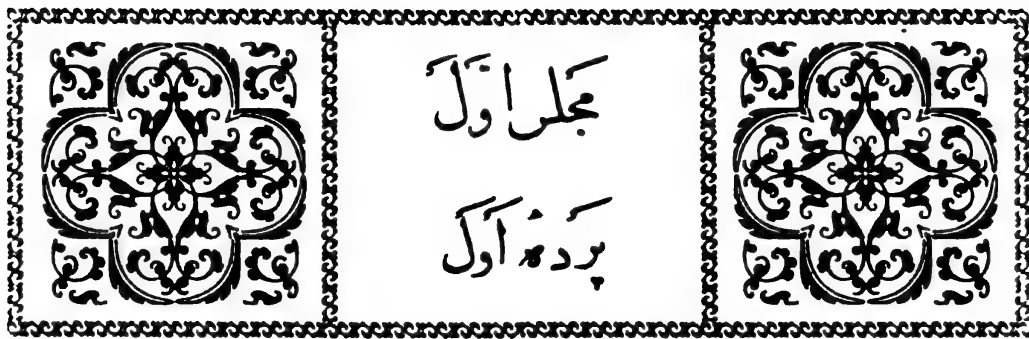 مجلس اوّل
پردهٔ اول